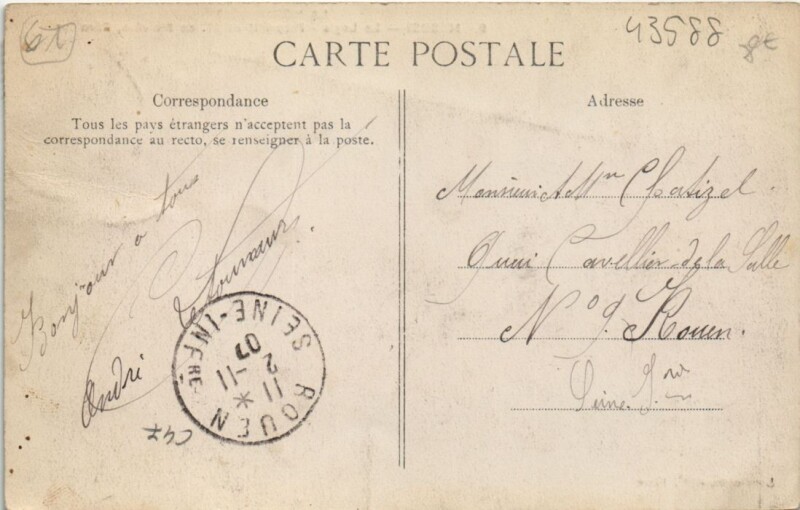 61
43588
8€
CARTE POSTALE
Correspondance
Tous les pays étrangers n'acceptent pas la
correspondance au recto, se renseigner à la poste.
Bonjour a tous
André
Adresse
Monsieur
Quai Cavellier de la Salle
Nº 9. Rouen.
Seine Jre
ROUEN
SEINE-INFRE
11 *
2 -11
07
C47